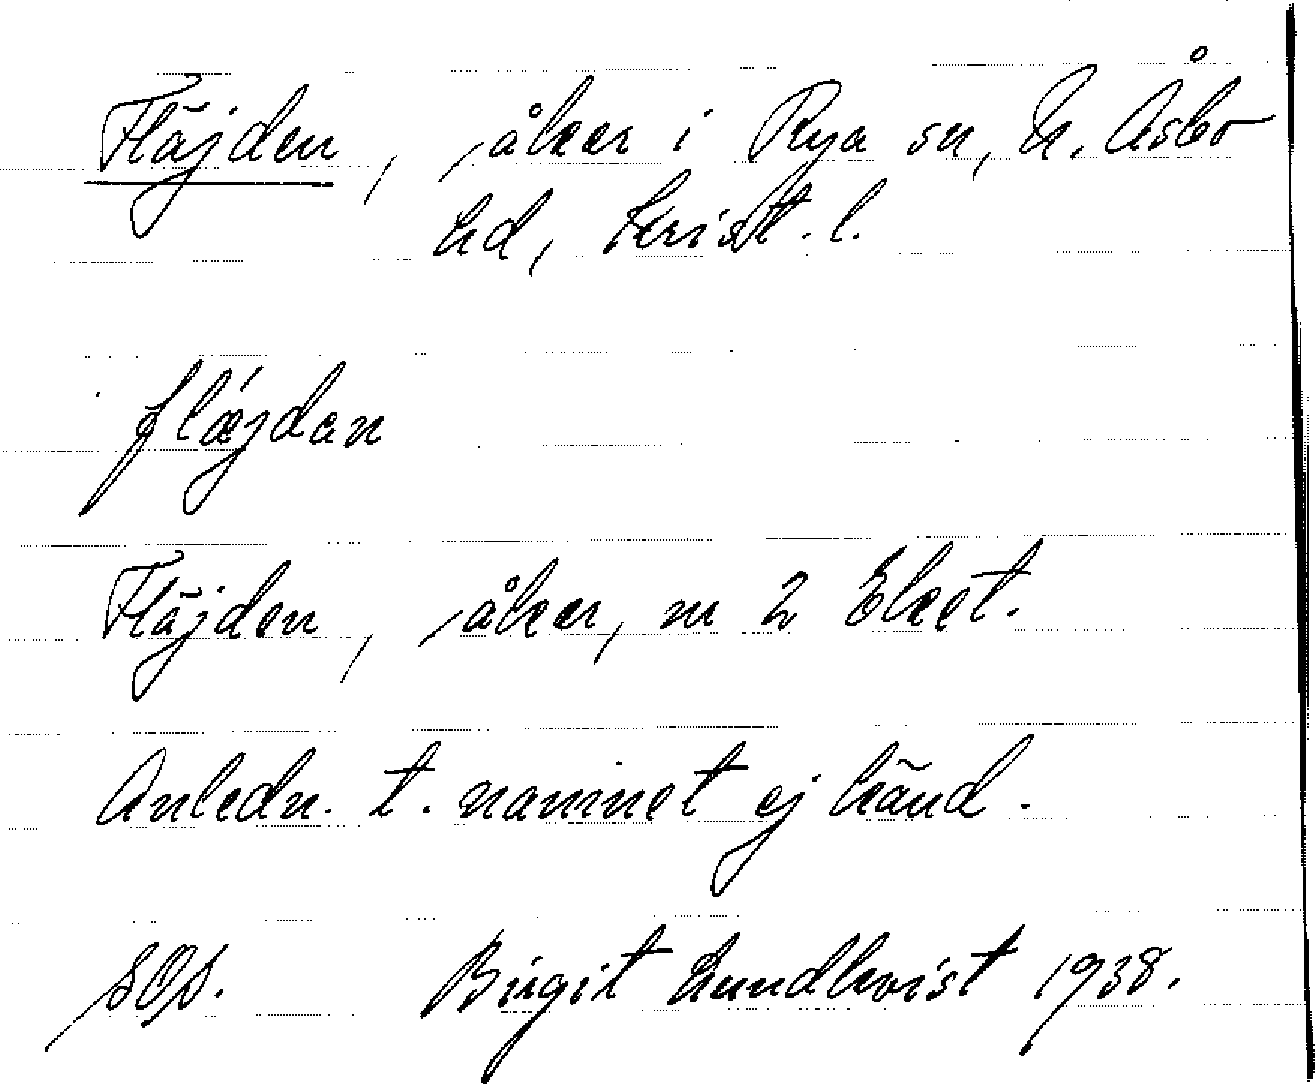 Fläjden, åker i Rya sn, N. Åsbo
hd, Krist. l.
flǽjdan
Fläjden, åker, nr 2 Eket.
Anledn. t. namnet ej känd.
SOS. Birgit Lundkvist 1938.